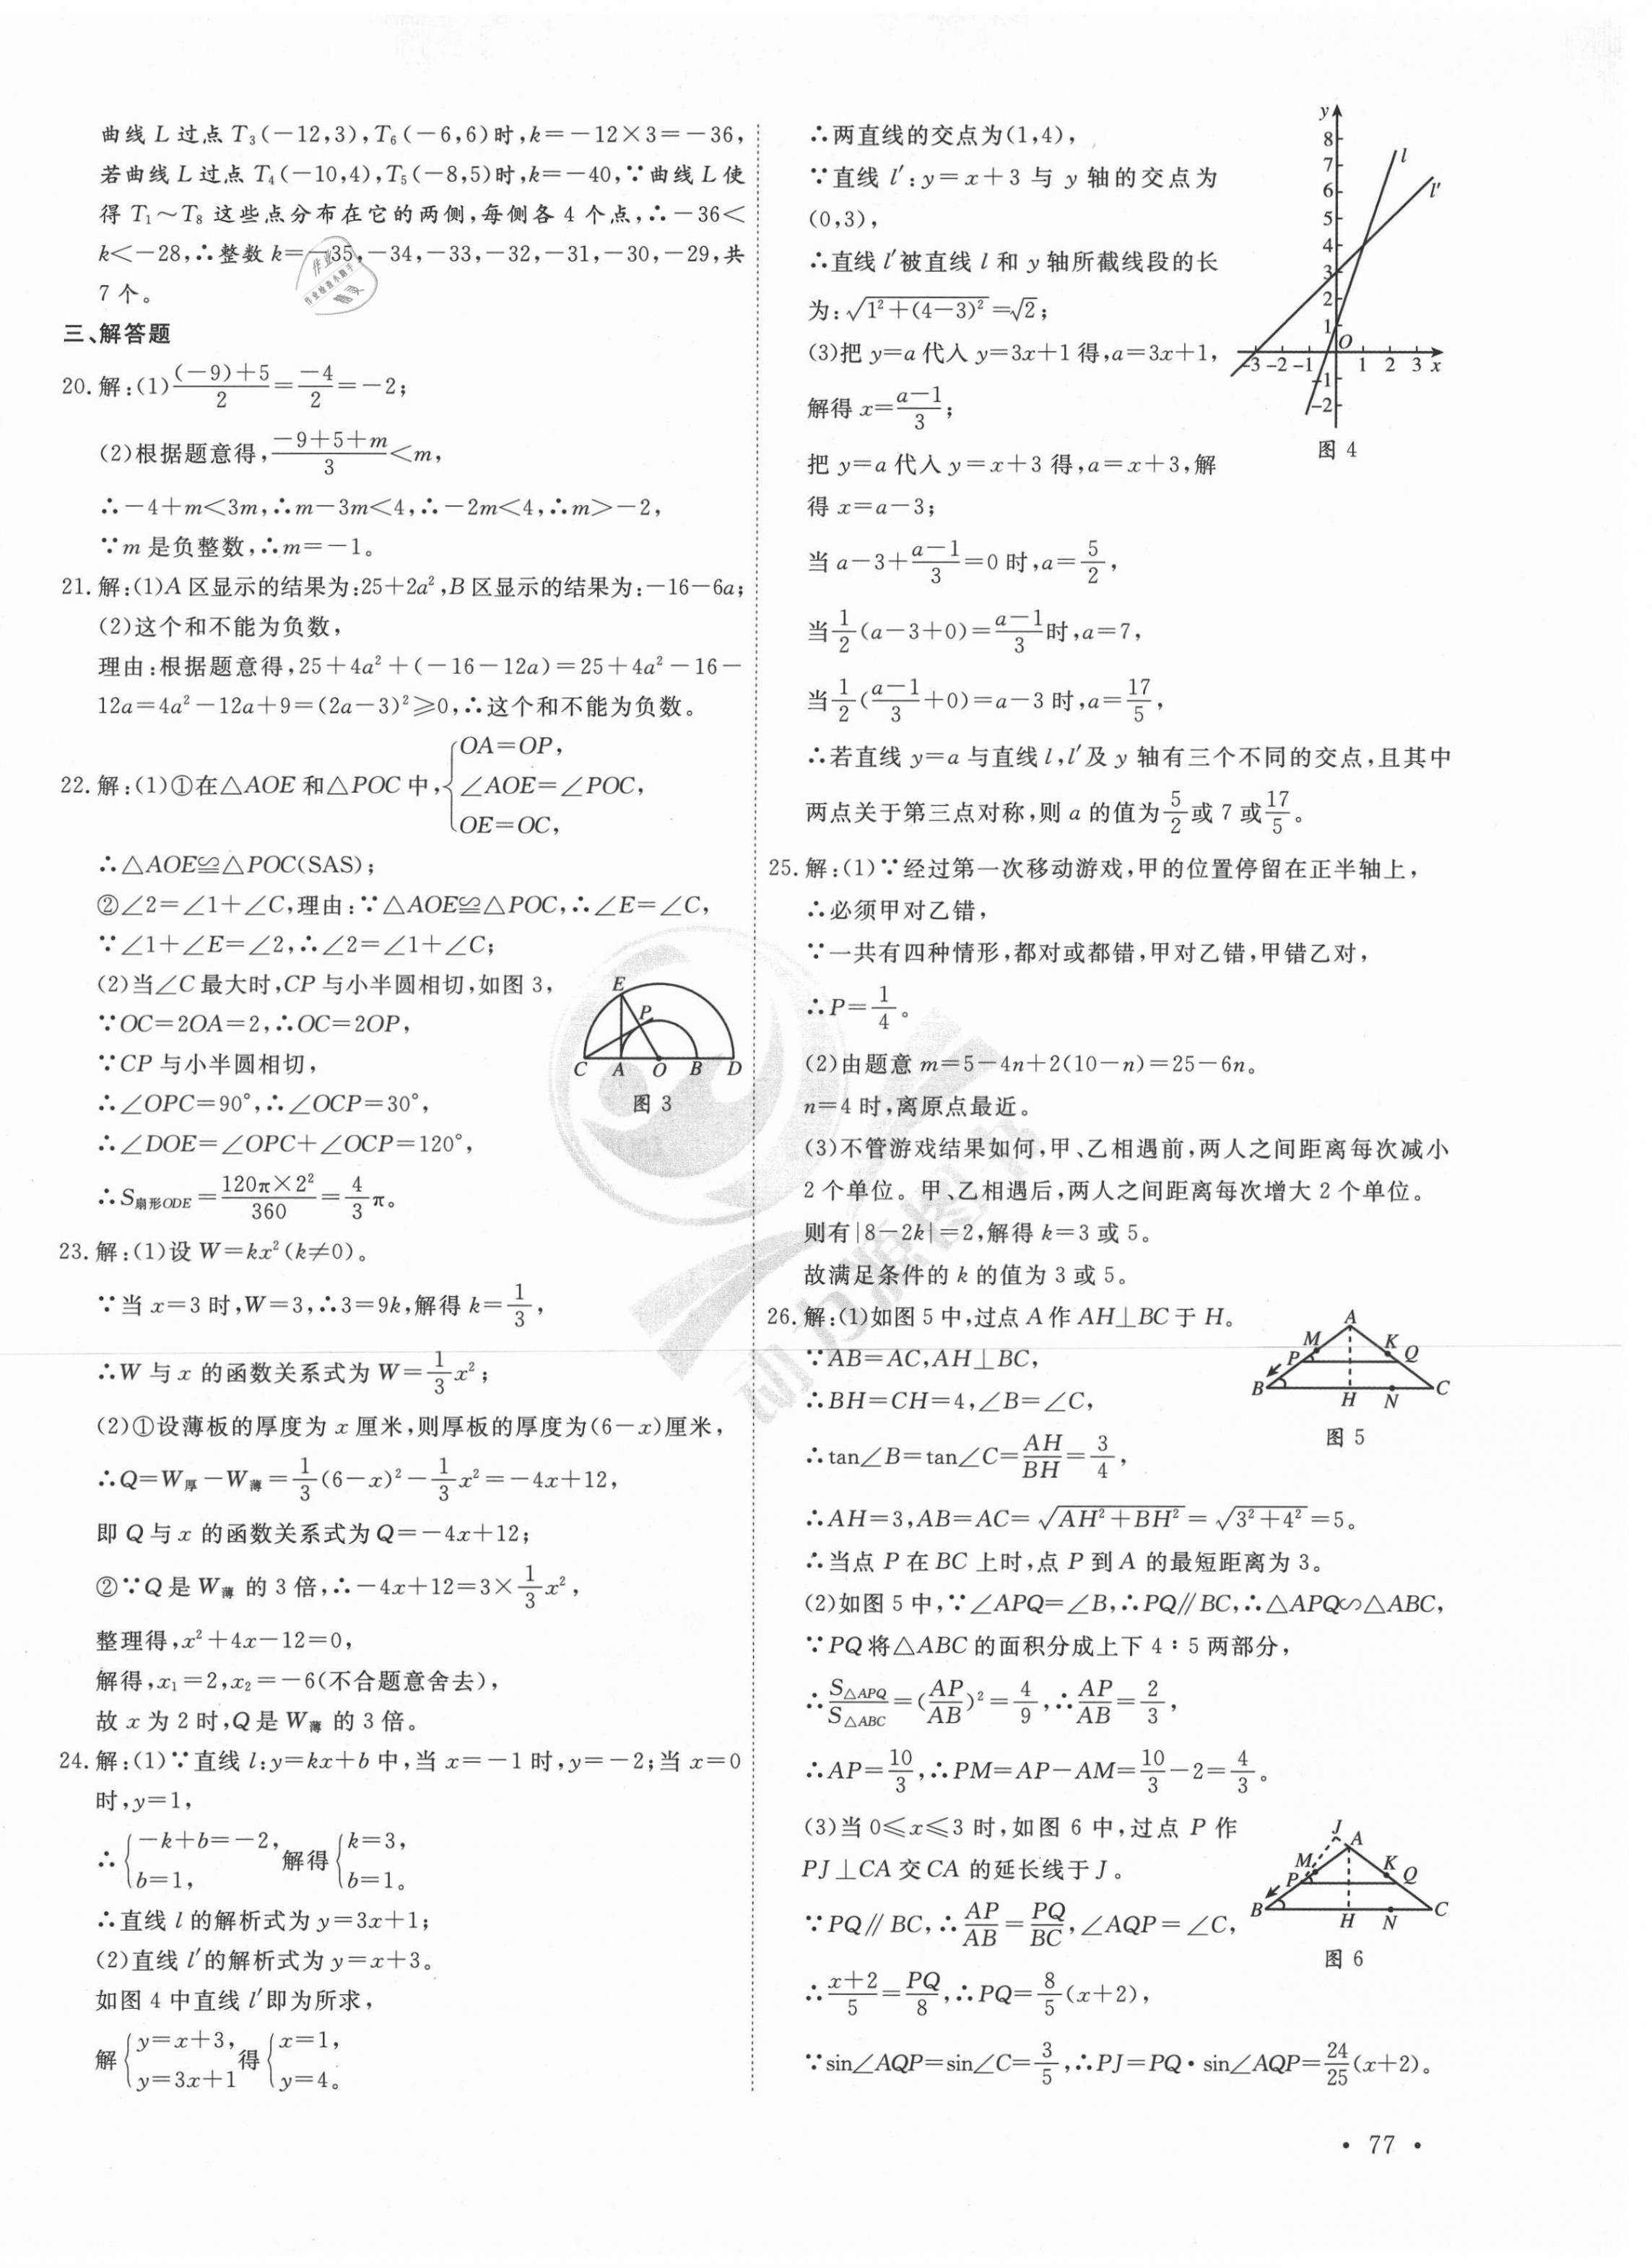 曲线 L 过点 T₃(-12,3),T₆(-6,6)时,k=-12×3=-36,
若曲线 L 过点 T₄(-10,4),T₅(-8,5)时,k=-40,∵曲线 L 使
得 T₁~T₈ 这些点分布在它的两侧,每侧各 4 个点,∴-36<
k<-28,∴整数 k=-35,-34,-33,-32,-31,-30,-29,共
7 个。
三、解答题
20. 解:(1)((-9)+5)/2=(-4)/2=-2;
(2)根据题意得,(-9+5+m)/3<m,
∴-4+m<3m,∴m-3m<4,∴-2m<4,∴m>-2,
∵m 是负整数,∴m=-1。
21. 解:(1)A 区显示的结果为:25+2a²,B 区显示的结果为:-16-6a;
(2)这个和不能为负数,
理由:根据题意得,25+4a²+(-16-12a)=25+4a²-16-
12a=4a²-12a+9=(2a-3)²≥0,∴这个和不能为负数。
22. 解:(1)①在△AOE 和△POC 中,{OA=OP,
∠AOE=∠POC,
OE=OC,
∴△AOE≌△POC(SAS);
②∠2=∠1+∠C,理由:∵△AOE≌△POC,∴∠E=∠C,
∵∠1+∠E=∠2,∴∠2=∠1+∠C;
(2)当∠C 最大时,CP 与小半圆相切,如图 3,
∵OC=2OA=2,∴OC=2OP,
∵CP 与小半圆相切,
∴∠OPC=90°,∴∠OCP=30°,
∴∠DOE=∠OPC+∠OCP=120°,
∴S扇形ODE=(120π×2²)/360=4/3π。
E
P
C A O B D
图 3
23. 解:(1)设 W=kx²(k≠0)。
∵当 x=3 时,W=3,∴3=9k,解得 k=1/3,
∴W 与 x 的函数关系式为 W=1/3x²;
(2)①设薄板的厚度为 x 厘米,则厚板的厚度为(6-x)厘米,
∴Q=W厚-W薄=1/3(6-x)²-1/3x²=-4x+12,
即 Q 与 x 的函数关系式为 Q=-4x+12;
②∵Q 是 W薄 的 3 倍,∴-4x+12=3×1/3x²,
整理得,x²+4x-12=0,
解得,x₁=2,x₂=-6(不合题意舍去),
故 x 为 2 时,Q 是 W薄 的 3 倍。
24. 解:(1)∵直线 l:y=kx+b 中,当 x=-1 时,y=-2;当 x=0
时,y=1,
∴{-k+b=-2, b=1, 解得{k=3, b=1。
∴直线 l 的解析式为 y=3x+1;
(2)直线 l′的解析式为 y=x+3。
如图 4 中直线 l′即为所求,
解{y=x+3, y=3x+1 得{x=1, y=4。
∴两直线的交点为(1,4),
∵直线 l′:y=x+3 与 y 轴的交点为
(0,3),
∴直线 l′被直线 l 和 y 轴所截线段的长
为:√(1²+(4-3)²)=√2;
(3)把 y=a 代入 y=3x+1 得,a=3x+1,
解得 x=(a-1)/3;
把 y=a 代入 y=x+3 得,a=x+3,解
得 x=a-3;
当 a-3+(a-1)/3=0 时,a=5/2,
当1/2(a-3+0)=(a-1)/3时,a=7,
当1/2((a-1)/3+0)=a-3 时,a=17/5,
∴若直线 y=a 与直线 l,l′及 y 轴有三个不同的交点,且其中
两点关于第三点对称,则 a 的值为5/2或 7 或17/5。
y
8
7
6
5
4
3
2
1
l
l′
O
-3 -2 -1 1 2 3 x
-1
-2
图 4
25. 解:(1)∵经过第一次移动游戏,甲的位置停留在正半轴上,
∴必须甲对乙错,
∵一共有四种情形,都对或都错,甲对乙错,甲错乙对,
∴P=1/4。
(2)由题意 m=5-4n+2(10-n)=25-6n。
n=4 时,离原点最近。
(3)不管游戏结果如何,甲、乙相遇前,两人之间距离每次减小
2 个单位。甲、乙相遇后,两人之间距离每次增大 2 个单位。
则有|8-2k|=2,解得 k=3 或 5。
故满足条件的 k 的值为 3 或 5。
26. 解:(1)如图 5 中,过点 A 作 AH⊥BC 于 H。
∵AB=AC,AH⊥BC,
∴BH=CH=4,∠B=∠C,
∴tan∠B=tan∠C=AH/BH=3/4,
∴AH=3,AB=AC=√(AH²+BH²)=√(3²+4²)=5。
∴当点 P 在 BC 上时,点 P 到 A 的最短距离为 3。
A
M K
P Q
B H N C
图 5
(2)如图 5 中,∵∠APQ=∠B,∴PQ∥BC,∴△APQ∽△ABC,
∵PQ 将△ABC 的面积分成上下 4∶5 两部分,
∴S△APQ/S△ABC=(AP/AB)²=4/9,∴AP/AB=2/3,
∴AP=10/3,∴PM=AP-AM=10/3-2=4/3。
(3)当 0≤x≤3 时,如图 6 中,过点 P 作
PJ⊥CA 交 CA 的延长线于 J。
∵PQ∥BC,∴AP/AB=PQ/BC,∠AQP=∠C,
∴(x+2)/5=PQ/8,∴PQ=8/5(x+2),
∵sin∠AQP=sin∠C=3/5,∴PJ=PQ·sin∠AQP=24/25(x+2)。
J A
M K
P Q
B H N C
图 6
• 77 •
作业
作业检查小助手
精灵